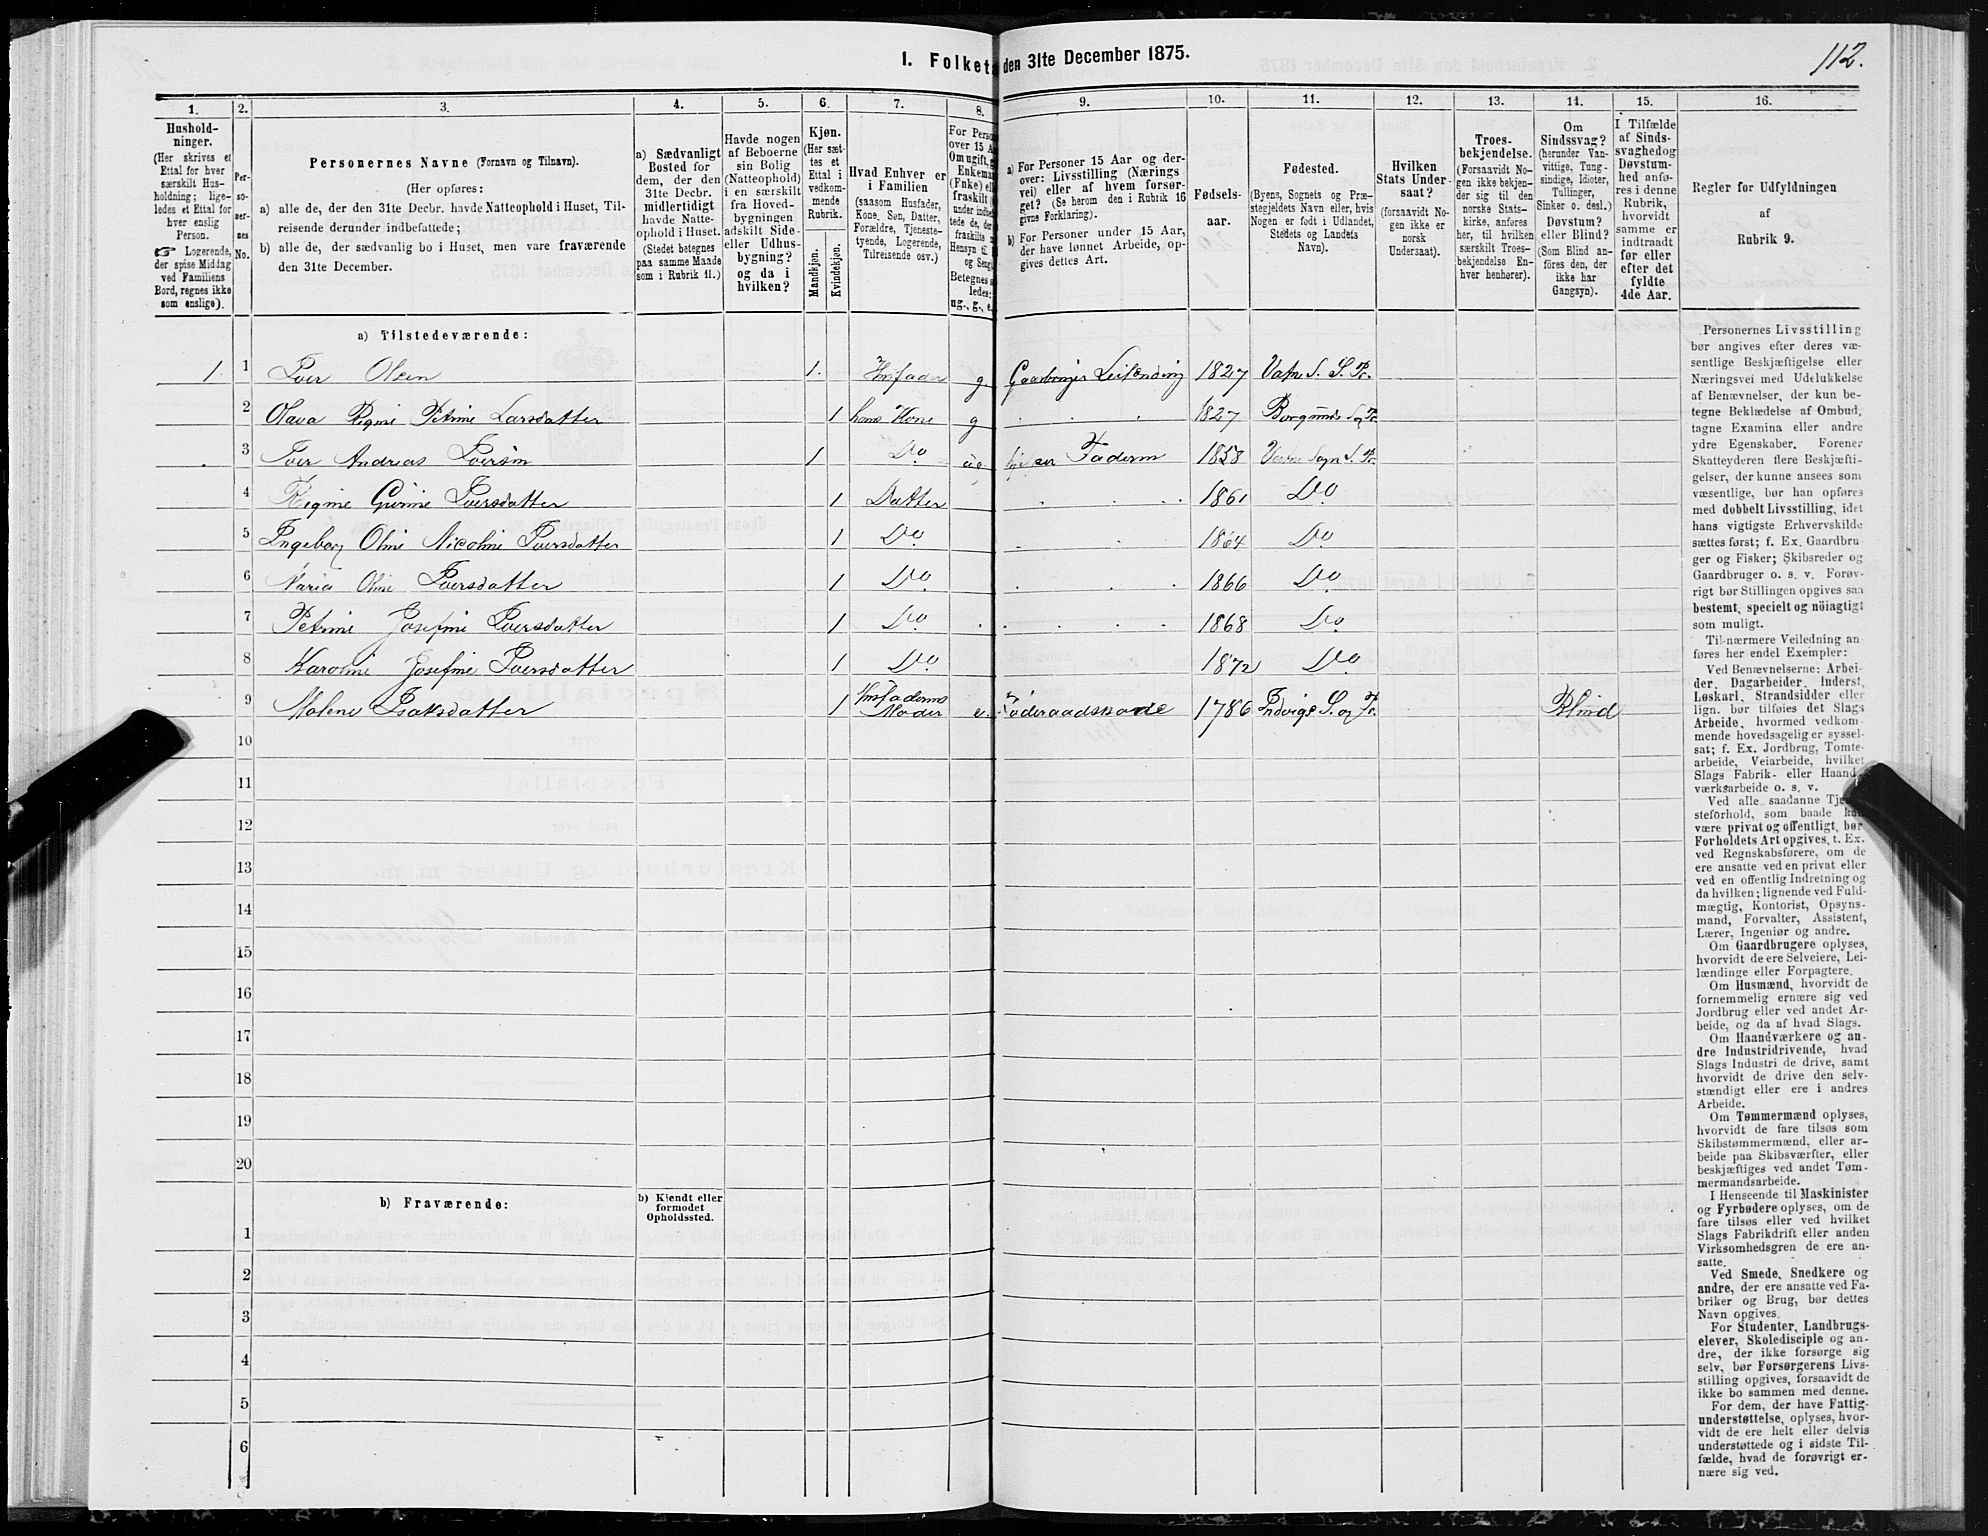 112.
1. Folket den 31te December 1875.
1. 2. 3. 4. 5. 6. 7. 8. 9. 10. 11. 12. 13. 14. 15. 16.
Hushold-
ninger.
(Her skrives et
Ettal for hver
særskilt Hus-
holdning; lige-
ledes et Ettal for
hver enslig
Person.
☞ Logerende,
der spise Middag
ved Familiens
Bord, regnes ikke
som enslige).
Per-
so-
ner-
nes
No.
Personernes Navne (Fornavn og Tilnavn).
(Her opføres:
a) alle de, der den 31te Decbr. havde Natteophold i Huset, Til-
reisende derunder indbefattede;
b) alle de, der sædvanlig bo i Huset, men vare fraværende
den 31te December.
a) Sædvanligt
Bosted for
dem, der den
31te Decbr.
midlertidigt
havde Natte-
ophold i Huset.
(Stedet betegnes
paa samme Maade
som i Rubrik 11.)
Havde nogen
af Beboerne
sin Bolig
(Natteophold)
i en særskilt
fra Hoved-
bygningen
adskilt Side-
eller Udhus-
bygning?
og da i
hvilken?
Kjøn.
(Her sæt-
tes et
Ettal i
vedkom-
mende
Rubrik.
Mandkjøn.
Kvindekjøn.
Hvad Enhver er
i Familien
(saasom Husfader,
Kone, Søn, Datter,
Forældre, Tjeneste-
tyende, Logerende,
Tilreisende osv.)
For Perso
over 15 A
Om ugift,
Enkema
(Fnke) el
fraskilt
under indbe
tede de, der
fraskilte
Hensyn til
og Seng
Betegnes s
ledes:
ug., g., e.
a) For Personer 15 Aar og der-
over: Livsstilling (Nærings
vei) eller af hvem forsør-
get? (Se herom den i Rubrik 16
givne Forklaring).
b) For Personer under 15 Aar,
der have lønnet Arbeide, op-
gives dettes Art.
Fødsels-
aar.
Fødested.
(Byens, Sognets og Præ-
stegjeldets Navn eller, hvis
Nogen er født i Udlandet,
Stedets og Landets
Navn).
Hvilken
Stats Under-
saat?
(forsaavidt No-
gen ikke er
norsk
Undersaat).
Troes-
bekjendelse.
(Forsaavidt No-
gen ikke bekjen-
der sig til den
norske Stats-
kirke, anføres
her, til hvilken
særskilt Troes-
bekjendelse En-
hver henhører).
Om
Sindssvag?
(herunder Van-
vittige, Tung-
sindige, Idioter,
Tullinger,
Sinker o. desl.)
Døvstum?
eller Blind?
(Som Blind an-
føres den, der
ikke har
Gangsyn).
I Tilfælde
af Sinds-
svaghedog
Døvstum-
hed anfø-
res i denne
Rubrik,
hvorvidt
samme er
indtraadt
før eller
efter det
fyldte
4de Aar.
Regler for Udfyldningen
af
Rubrik 9.
a) Tilstedeværende:
1 1 Poer Olsen 1. Husfader g Gaardbruger Leilending 1827 Vatne S. S. Pr.
2 Olava Regine Petrine Larsdatter 1 hans Kone g 1827 Borgunds
3 Poer Andreas Poersøn 1 Do ug. Faderen 1858 Vatne Sogn S. Pr.
4 Regine Gurine Poersdatter 1 Datter 1861 Do
5 Ingeborg Oline Nicoline Poersdatter 1 Do 1864 Do
6 Maria Oline Poersdatter 1 Do 1866 Do
7 Petrine Josefine Poersdatter 1 Do 1868 Do
8 Karoline Josefine Poersdatter 1 Do 1872 Do
9 Malene Isaksdatter 1 Husfaderens Moder e. Føderaadskone 1786 Indvigs S. og Pr. Blind
10
11
12
13
14
15
16
17
18
19
20
b) Fraværende:
b) Kjendt eller
formodet
Opholdssted.
1
2
3
4
5
6
Personernes Livsstilling
bør angives efter deres væ-
sentlige Beskjæftigelse eller
Næringsvei med Udelukkelse
af Benævnelser, der kun be-
tegne Beklædelse af Ombud,
tagne Examina eller andre
ydre Egenskaber. Forener
Skatteyderen flere Beskjæfti-
gelser, der kunne ansees som
væsentlige, bør han opføres
med dobbelt Livsstilling, idet
hans vigtigste Erhvervskilde
sættes først; f. Ex. Gaardbru-
ger og Fisker; Skibsreder og
Gaardbruger o. s. v. Forøv-
rigt bør Stillingen opgives saa
bestemt, specielt og nöiagtigt
som muligt.
Til nærmere Veiledning an-
føres her endel Exempler:
Ved Benævnelserne: Arbei-
der, Dagarbeider, Inderst,
Løskarl, Strandsidder eller
lign. bør tilføies det Slags
Arbeide, hvormed vedkom-
mende hovedsagelig er syssel-
sat; f. Ex. Jordbrug, Tomte-
arbeide, Veiarbeide, hvilket
Slags Fabrik- eller Haand-
værksarbeide o. s. v.
Ved alle saadanne Tje
steforhold, som baade ka
være privat og offentligt, bør
Forholdets Art opgives, t. Ex.
ved Regnskabsførere, om de
ere ansatte ved en privat eller
ved en offentlig Indretning og
da hvilken; lignende ved Fuld-
mægtig, Kontorist, Opsyns-
mand, Forvalter, Assistent,
Lærer, Ingeniør og andre.
Om Gaardbrugere oplyses,
hvorvidt de ere Selveiere, Lei-
lændinge eller Forpagtere.
Om Husmænd, hvorvidt de
fornemmelig ernære sig ved
Jordbrug eller ved andet Ar-
beide, og da af hvad Slags.
Om Haandværkere og an-
dre Industridrivende, hvad
Slags Industri de drive, samt
hvorvidt de drive den selv-
stændigt eller ere i andres
Arbeide.
Om Tømmermænd oplyses,
hvorvidt de fare tilsøs som
Skibstømmermænd, eller ar-
beide paa Skibsværfter, eller
beskjæftiges ved andet Tøm-
mermandsarbeide.
I Henseende til Maskinister
og Fyrbødere oplyses, om de
fare tilsøs eller ved hvilket
Slags Fabrikdrift eller anden
Virksomhedsgren de ere an-
satte.
Ved Smede, Snedkere og
andre, der ere ansatte ved Fa-
briker og Brug, bør dettes
Navn opgives.
For Studenter, Landbrugs-
elever, Skoledisciple og an-
dre, der ikke forsørge sig
selv, bør Forsørgerens Livs-
stilling opgives, forsaavidt de
ikke bo sammen med denne.
For dem, der have Fattig-
understøttelse, oplyses, hvor-
vidt de ere helt eller delvis
understøttede og i sidste Til-
fælde, hvad de forøvrigt er-
nære sig ved.